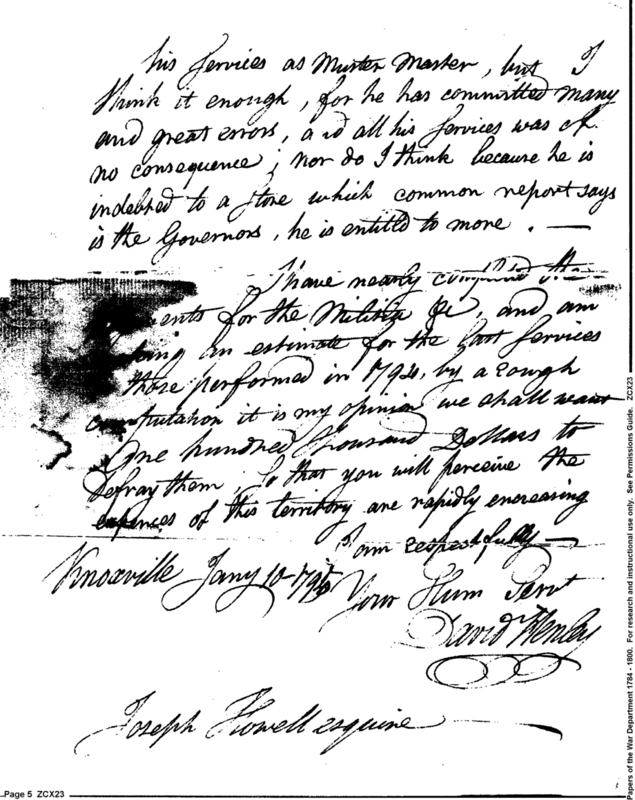 his Services as Muster Master, but I
think it enough, for he has committed many
and great errors, and all his Services was of
no consequence; nor do I think because he is
indebted to a Store which common report says
is the Governors, he is entitled to more. —
I have nearly compleated the
ents for the Militia &c, and am
king an estimate for the last Services
those performed in 1794, by a rough
computation it is my opinion we shall want
One hundred thousand Dollars to
defray them So that you will perceive the
expences of this territory are rapidly encreasing
I am respectfully —
Knoxville Jany 10 1795 Your Hum Servt
David Henley
Joseph Howell esquire
Page 5 ZCX23
Papers of the War Department 1784 - 1800. For research and instructional use only. See Permissions Guide. ZCX23